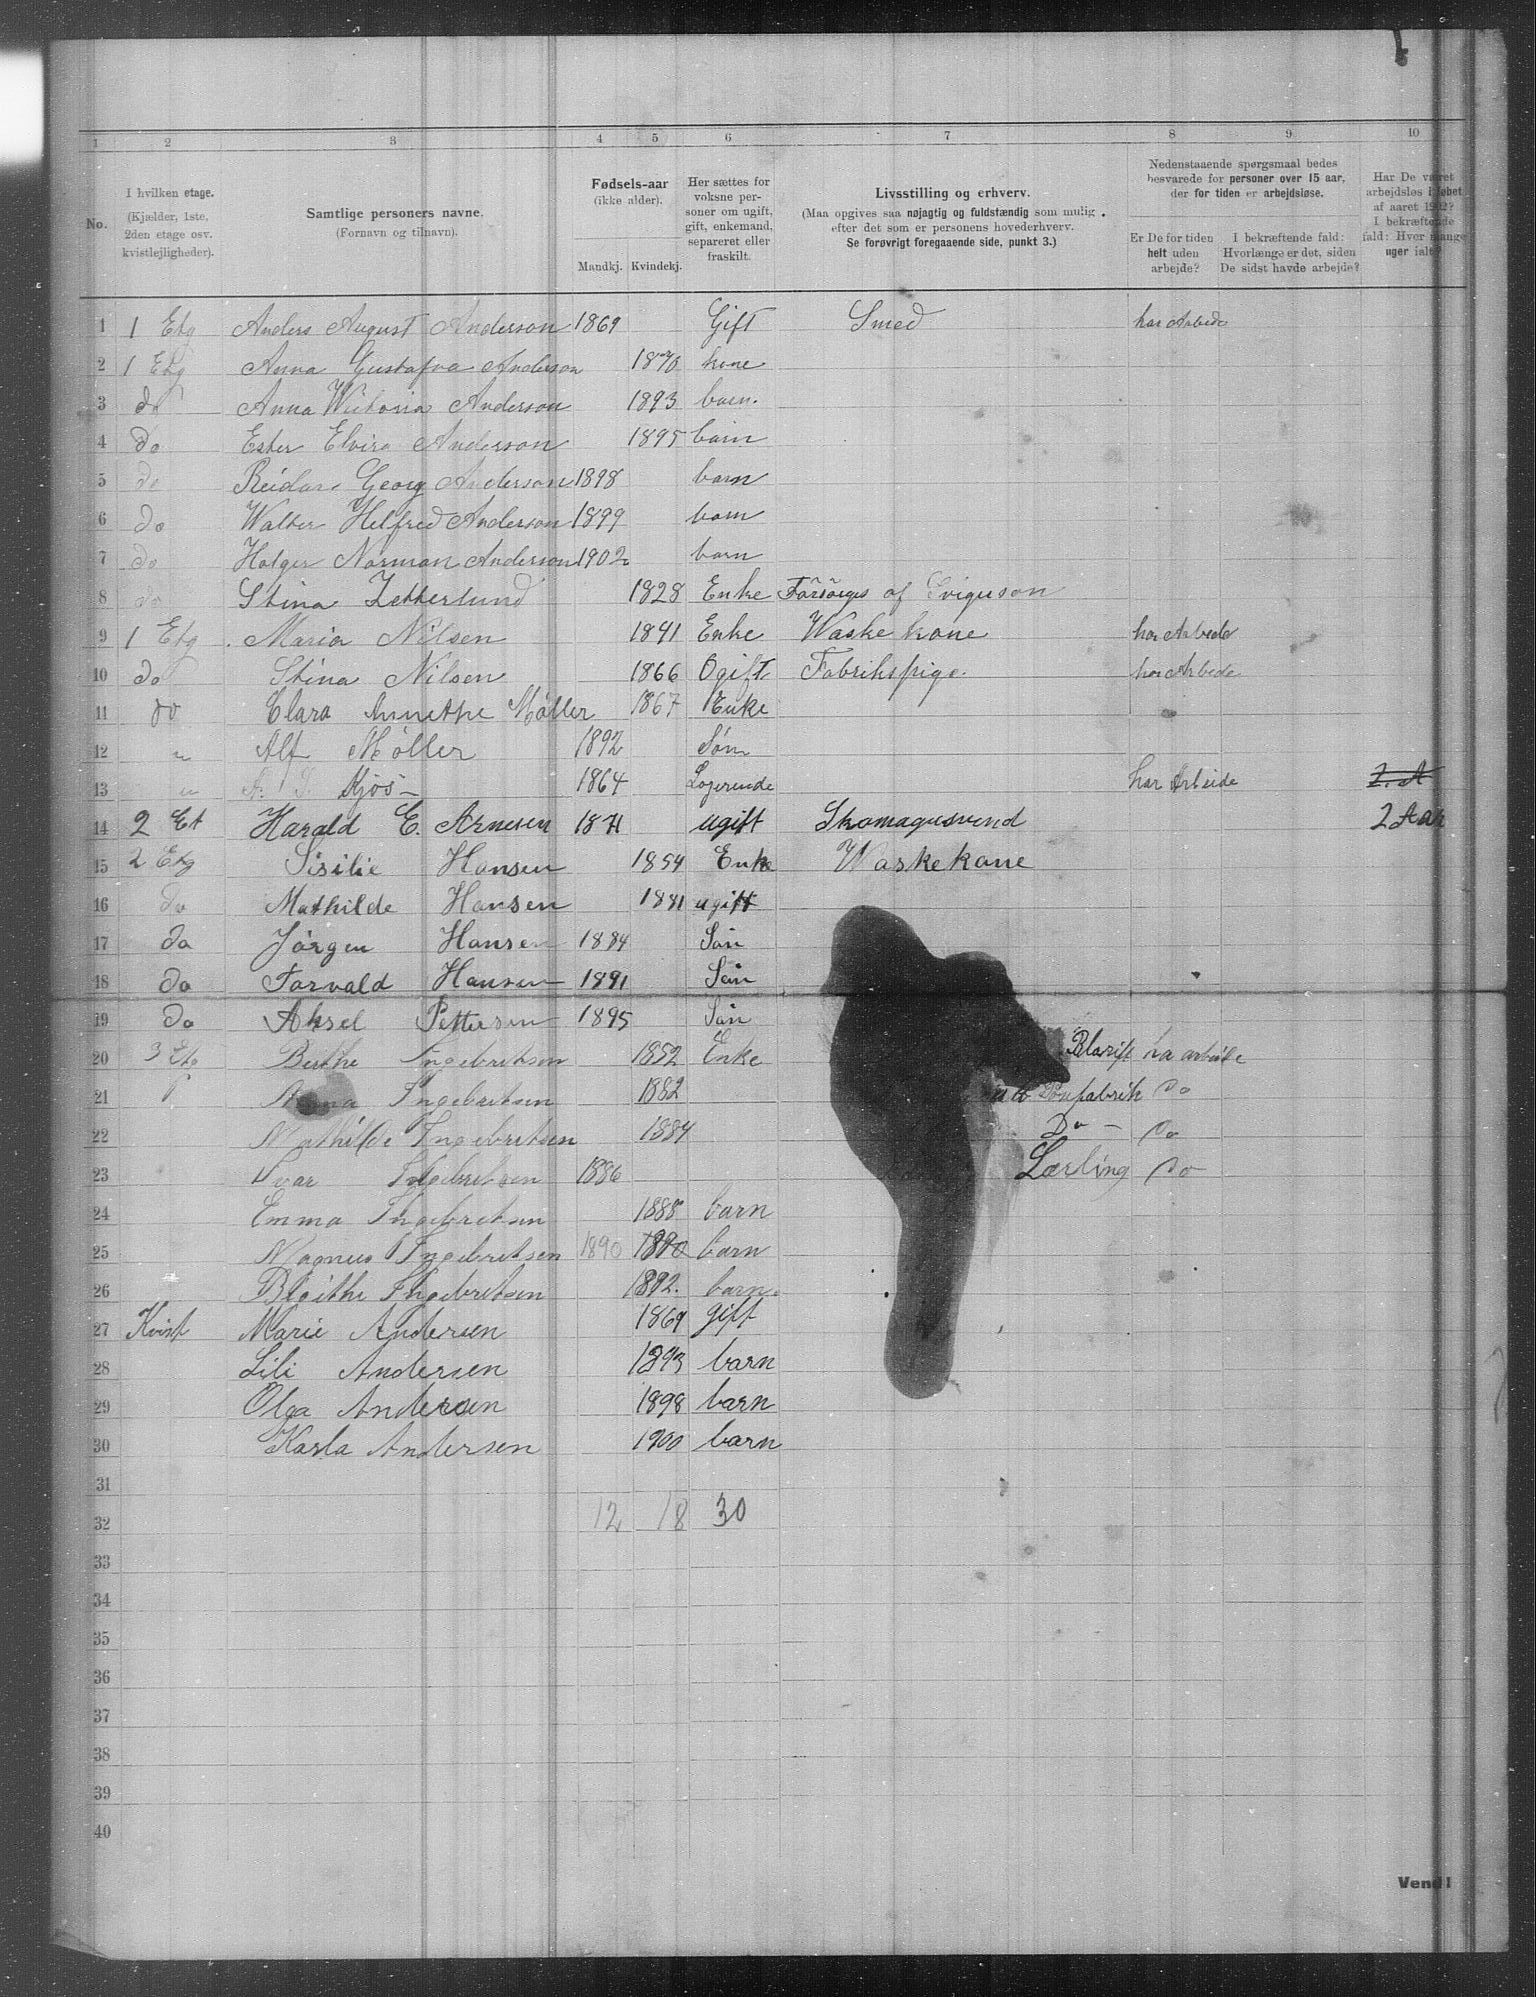 1 2 3 4 5 6 7 8 9 10
No.
I hvilken etage.
(Kjælder, 1ste,
2den etage osv.
kvistlejligheder).
Samtlige personers navne.
(Fornavn og tilnavn).
Fødsels-aar
(ikke alder).
Mandkj. Kvindekj.
Her sættes for
voksne per-
soner om ugift,
gift, enkemand,
separeret eller
fraskilt.
Livsstilling og erhverv.
(Maa opgives saa nøjagtig og fuldstændig som mulig
efter det som er personens hovederhverv.
Se forøvrigt foregaaende side, punkt 3.)
Nedenstaaende spørgsmaal bedes
besvarede for personer over 15 aar,
der for tiden er arbejdsløse.
Er De for tiden
helt uden
arbejde?
I bekræftende fald:
Hvorlænge er det, siden
De sidst havde arbejde?
Har De været
arbejdsløs i løbet
af aaret 1902?
I bekræftende
fald: Hver mange
uger ialt?
1 1 Etg Anders August Anderson 1869 Gift Smed har Arbede
2 1 Etg Anna Gustafva Anderson 1870 kone
3 do Anna Wictoria Anderson 1893 barn.
4 do Ester Elvira Anderson 1895 barn
5 do Reidar Georg Anderson 1898 barn
6 do Walter Helfred Anderson 1899 barn
7 do Holger Norman Anderson 1902 barn
8 do Stina Zetterlund 1828 Enke Forsörges af
9 1 Etg Maria Nilsen 1841 Enke Waske kone har Arbede
10 do Stina Nilsen 1866 Ogift Fabrikspige har Arbede
11 do Clara Annethe Møller 1867 Enke
12 " Alf Møller 1892 Søn
13 " Kjøs 1864 Logerende har Arbeide 2. A
14 2 Et Harald E. Arnesen 1871 ugift Skomagersvend 2 Aar
15 2 Etg Sisilie Hansen 1854 Enke Waskekone
16 do Mathilde Hansen 1881 ugift
17 do Jørgen Hansen 1884 Søn
18 do Torvald Hansen 1891 Søn
19 do Aksel Pettersen 1895 Søn
20 3 Etg Berthe Ingebretsen 1852 Enke ha arbeide
21 Anna Ingebretsen 1882 Do
22 Mathilde Ingebretsen 1884 Do - Do
23 Ivar Ingebretsen 1886 Lærling Do
24 Emma Ingebretsen 1888 barn
25 Magnus Ingebretsen 1890 1890 barn
26 Ingebretsen 1892. barn
27 Kvist Marie Andersen 1869 gift
28 Lili Andersen 1893 barn
29 Olga Andersen 1898 barn
30 Karla Andersen 1900 barn
31
32 12 18 30
33
34
35
36
37
38
39
40
Vend!